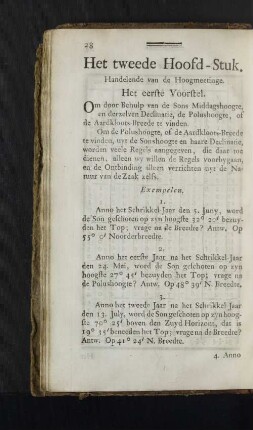 28
Het tweede Hoofd-Stuk.
Handelende van de Hoogmeetinge.
Het eerste Voorstel.
Om door Behulp van de Sons Middagshoogte,
en derzelven Declinatie, de Poluschoogte, of
de Aardkloots-Breedte te vinden.
Om de Polushoogte, of de Aardkloots-Breedte
te vinden, uyt de Sonshoogte en haare Declinatie,
worden veele Regels aangegeeven, die daar toe
dienen. alleen wy willen de Regels voorbygaan,
en de Ontbinding alleen verrichten uyt de Na-
tuur van de Zaak zelfs.
Exempelen.
1.
Anno het Schrikkel-Jaar den 5. Juny, word
de Son geschoten op zyn hoogste 32° 20′ beney-
den het Top; vrage na de Breedte? Antw. Op
55° 0′ Noorderbreedte.
2.
Anno het eerste Jaar na het Schrikkel-Jaar
den 24. Mei, word de Son geschoten op zyn
hoogste 27° 45′ beneyden het Top; vrage na
de Polushoogte? Antw. Op 48° 39′ N. Breedte.
3.
Anno het tweede Jaar na het Schrikkel-Jaar
den 13. July, word de Son geschoten op zyn hoog-
ste 70° 25′ boven den Zuyd Horizont, dat is
19° 35′ beneeden het Top; vrage na de Breedte?
Antw. Op 41° 24′ N. Breedte.
4. Anno